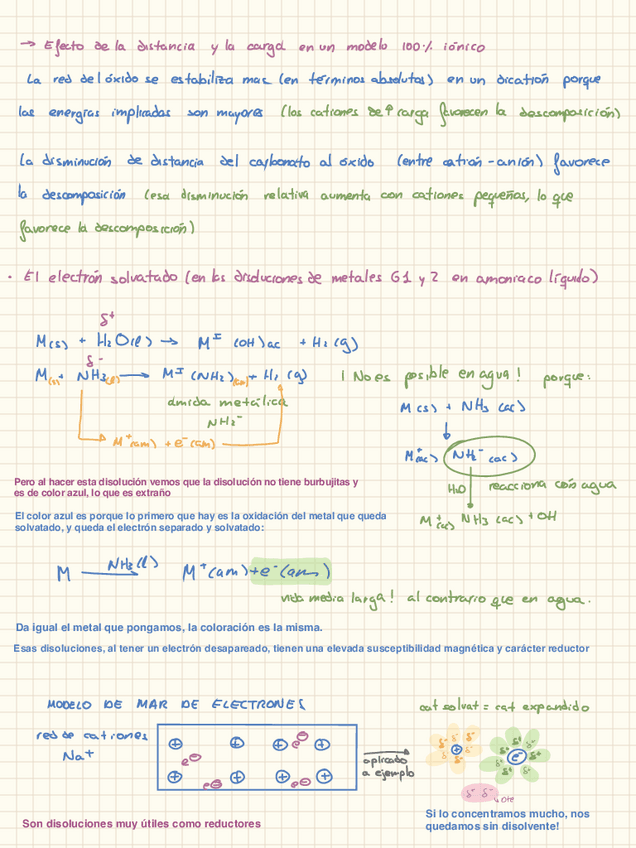 → Efecto de la distancia y la carga en un modelo 100% iónico
La red del óxido se estabiliza mas (en términos absolutos) en un dicatión porque
las energías implicadas son mayores (los cationes de ↑ carga favorecen la descomposición)
La disminución de distancia del carbonato al óxido (entre catión-anión) favorece
la descomposición (esa disminución relativa aumenta con cationes pequeños, lo que
favorece la descomposición)
· El electrón solvatado (en las disoluciones de metales G1 y 2 en amoniaco líquido)
δ+
M(s) + H2O(l) → M^I (OH)ac + H2(g)
δ-
M(s) + NH3(l) → M^I (NH2)(am) + H2(g) ¡No es posible en agua! porque:
amida metálica
NH2-
M+(am) + e-(am)
M(s) + NH3 (ac)
M+(ac) NH2- (ac)
H2O reacciona con agua
M+(ac) NH3 (ac) + OH
Pero al hacer esta disolución vemos que la disolución no tiene burbujitas y
es de color azul, lo que es extraño
El color azul es porque lo primero que hay es la oxidación del metal que queda
solvatado, y queda el electrón separado y solvatado:
M NH3(l) → M+(am) + e-(am)
vida media larga! al contrario que en agua.
Da igual el metal que pongamos, la coloración es la misma.
Esas disoluciones, al tener un electrón desapareado, tienen una elevada susceptibilidad magnética y carácter reductor
MODELO DE MAR DE ELECTRONES
cat solvat = cat expandido
red de cationes
Na+
+ + + e- +
e-
+ e- + + e- +
aplicado
a ejemplo
+ e-
δ- δ-
Son disoluciones muy útiles como reductores
Si lo concentramos mucho, nos
quedamos sin disolvente!